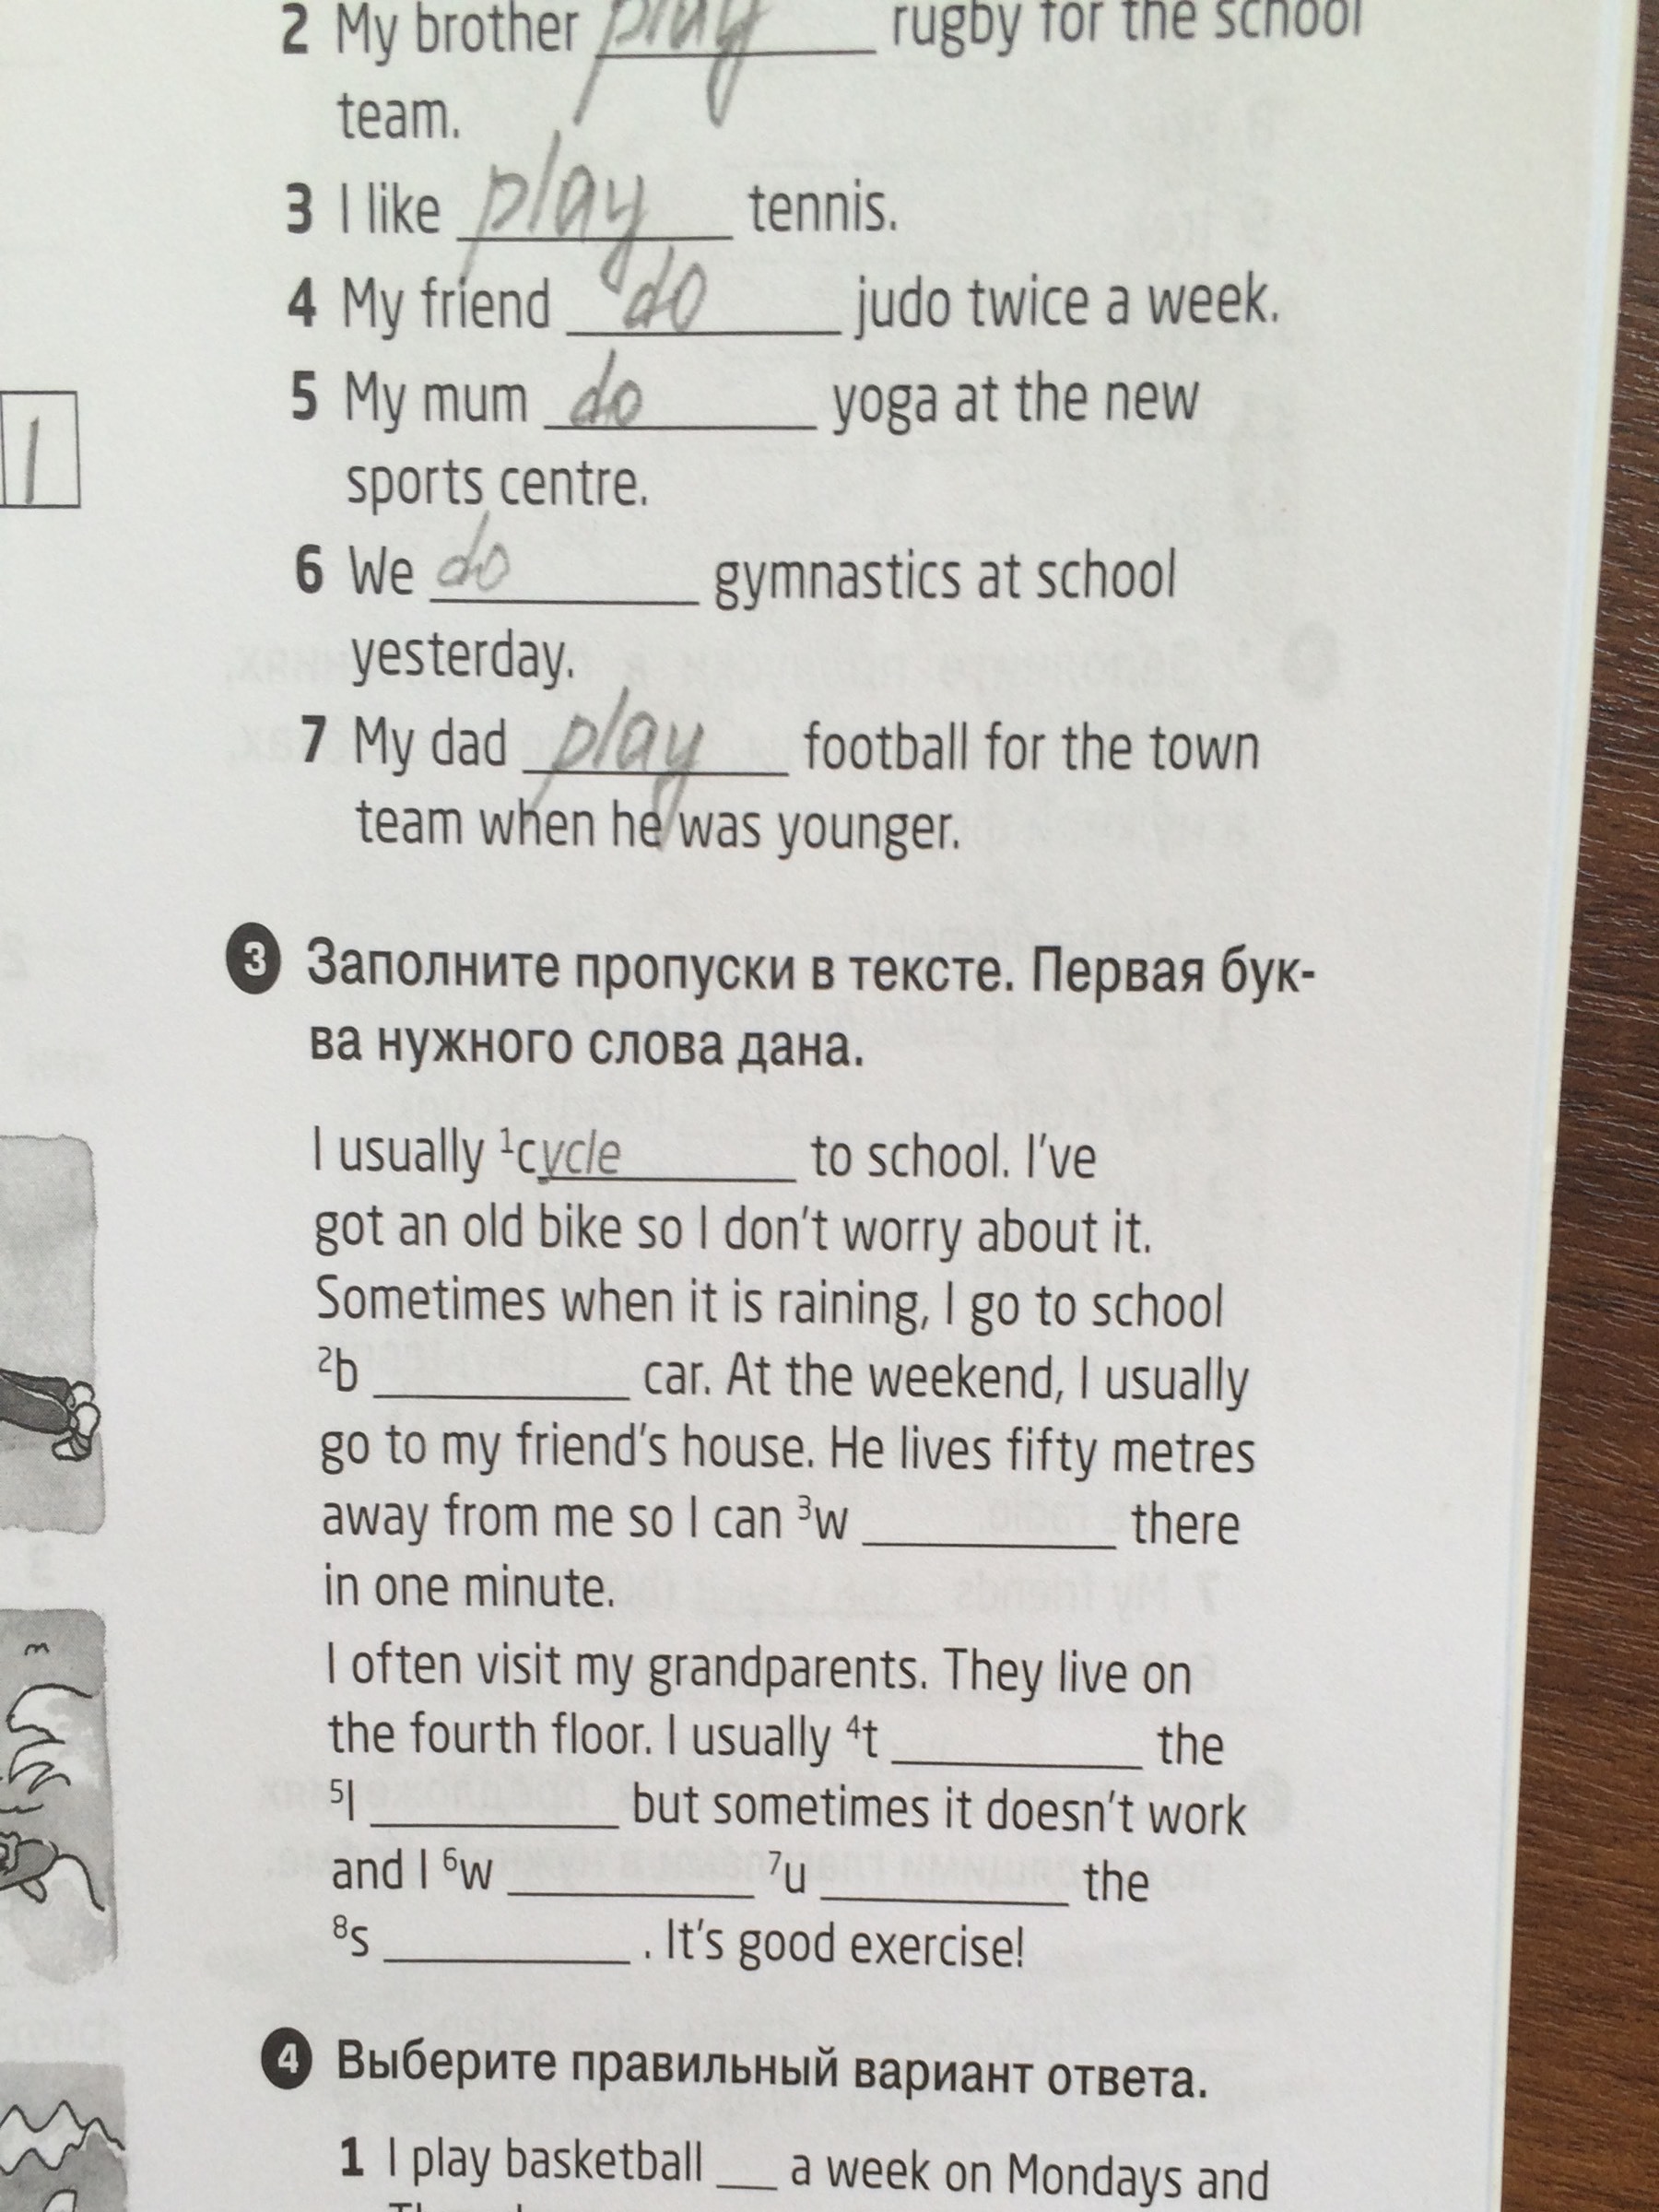 2 My brother play rugby for the school
team.
3 I like play tennis.
4 My friend do judo twice a week.
5 My mum do yoga at the new
sports centre.
1
6 We do gymnastics at school
yesterday.
7 My dad play football for the town
team when he was younger.
3 Заполните пропуски в тексте. Первая бук-
ва нужного слова дана.
I usually ¹cycle to school. I've
got an old bike so I don't worry about it.
Sometimes when it is raining, I go to school
²b ________ car. At the weekend, I usually
go to my friend's house. He lives fifty metres
away from me so I can ³w ________ there
in one minute.
I often visit my grandparents. They live on
the fourth floor. I usually ⁴t ________ the
⁵l ________ but sometimes it doesn't work
and I ⁶w ________ ⁷u ________ the
⁸s ________ . It's good exercise!
4 Выберите правильный вариант ответа.
1 I play basketball __ a week on Mondays and